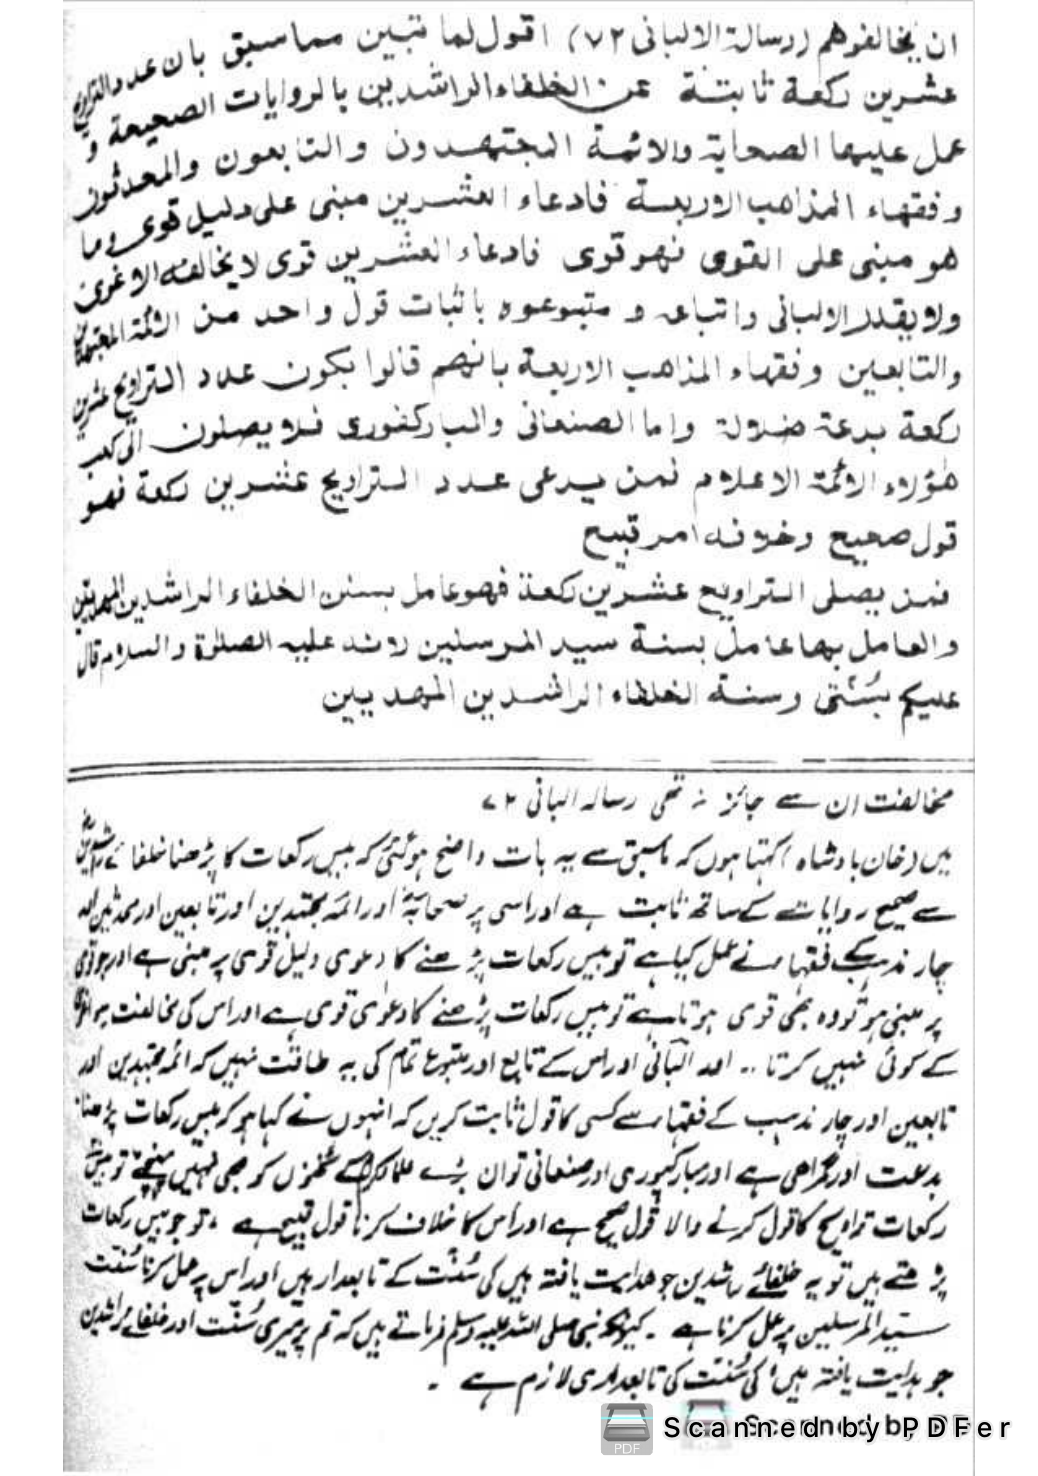 ان يخالفوهم (رسالة الالبانى ٧٢) اقول لما تبين مما سبق بان عدد التراويح
عشرين ركعة ثابتة عن الخلفاء الراشدين بالروايات الصحيحة و
عمل عليها الصحابة والائمة المجتهدون والتابعون والمحدثون
وفقهاء المذاهب الاربعة فادعاء العشرين مبنى على دليل قوى وما
هو مبنى على القوى فهو قوى فادعاء العشرين قوى لا يخالفه الا غوى
ولا يقدر الالبانى واتباعه و متبوعوه باثبات قول واحد من الائمة المجتهدين
والتابعين وفقهاء المذاهب الاربعة بانهم قالوا بكون عدد التراويح عشرين
ركعة بدعة ضلالة واما الصنعانى والمباركفورى فلا يصلون الى كعب
هؤلاء الائمة الاعلام فمن يدعى عدد التراويح عشرين ركعة فهو
قول صحيح وخلافه امر قبيح
فمن يصلى التراويح عشرين ركعة فهو عامل بسنن الخلفاء الراشدين المهديين
والعامل بها عامل بسنة سيد المرسلين لانه عليه الصلوة والسلام قال
عليكم بسُنّتى وسنة الخلفاء الراشدين المهديين
مخالفت ان سے جائز نہ تھی رسالہ البانی ٧٢
میں (خان بادشاہ) کہتا ہوں کہ ماسبق سے یہ بات واضح ہوگئی کہ بیس رکعات کا پڑھنا خلفائے راشدین
سے صحیح روایات کے ساتھ ثابت ہے اور اسی پر صحابہؓ اور ائمہ مجتہدین اور تابعین اور محدثین اور
چار مذہب کے فقہاء نے عمل کیا ہے تو بیس رکعات پڑھنے کا دعوی دلیل قوی پر مبنی ہے اور جو قوی
پر مبنی ہو تو وہ بھی قوی ہوتا ہے تو بیس رکعات پڑھنے کا دعوٰی قوی ہے اور اس کی مخالفت سوائے
کے کوئی نہیں کرتا .. اور البانی اور اس کے تابع اور متبوع تمام کی یہ طاقت نہیں کہ ائمہ مجتہدین اور
تابعین اور چار مذہب کے فقہاء سے کسی کا قول ثابت کریں کہ انہوں نے کہا ہو کہ بیس رکعات پڑھنا
بدعت اور گمراھی ہے اور مبارکپوری اور صنعانی تو ان بڑے علماء کے ٹخنوں کو بھی نہیں پہنچے تو بیس
رکعات تراویح کا قول کرنے والا قول صحیح ہے اور اس کا خلاف کرنا قول قبیح ہے ، تو جو بیس رکعات
پڑھتے ہیں تو یہ خلفائے راشدین جو ھدایت یافتہ ہیں کی سُنّت کے تابعدار ہیں اور اس پر عمل کرنا سُنّت
سید المرسلین پر عمل کرنا ہے ۔ کیونکہ نبی صلی اللہ علیہ وسلم فرماتے ہیں کہ تم پر میری سُنّت اور خلفائے راشدین
جو ہدایت یافتہ ہیں، کی سُنّت کی تابعداری لازم ہے ۔
Scanned by PDFer
Scanned by PDFer